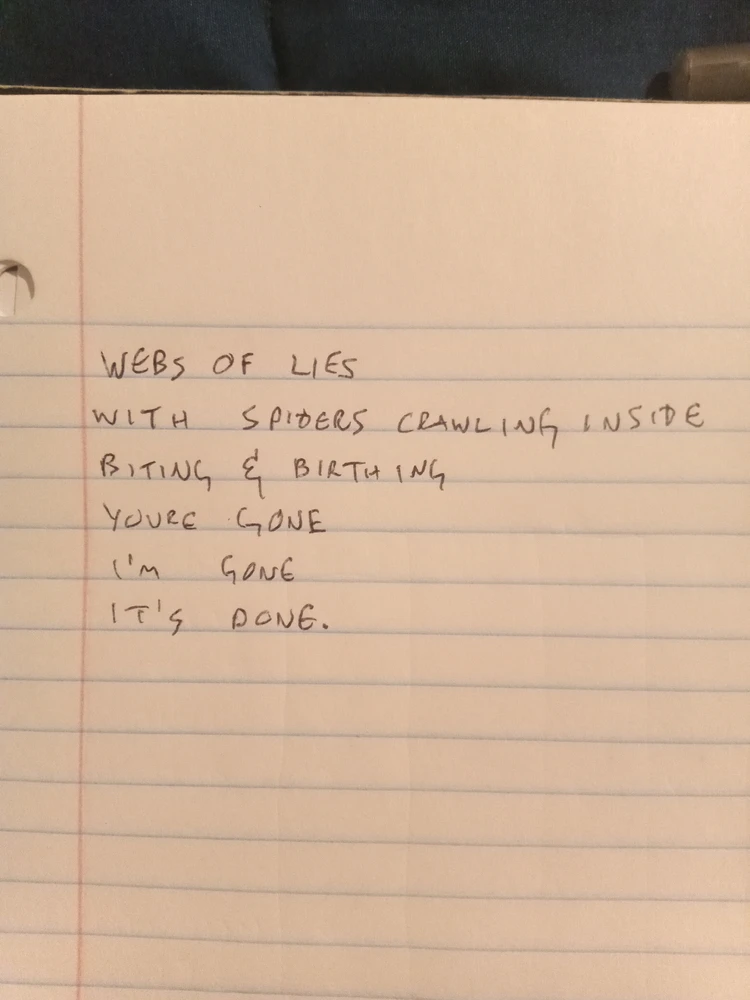 WEBS OF LIES
WITH SPIDERS CRAWLING INSIDE
BITING & BIRTHING
YOURE GONE
I'M GONE
IT'S DONE.